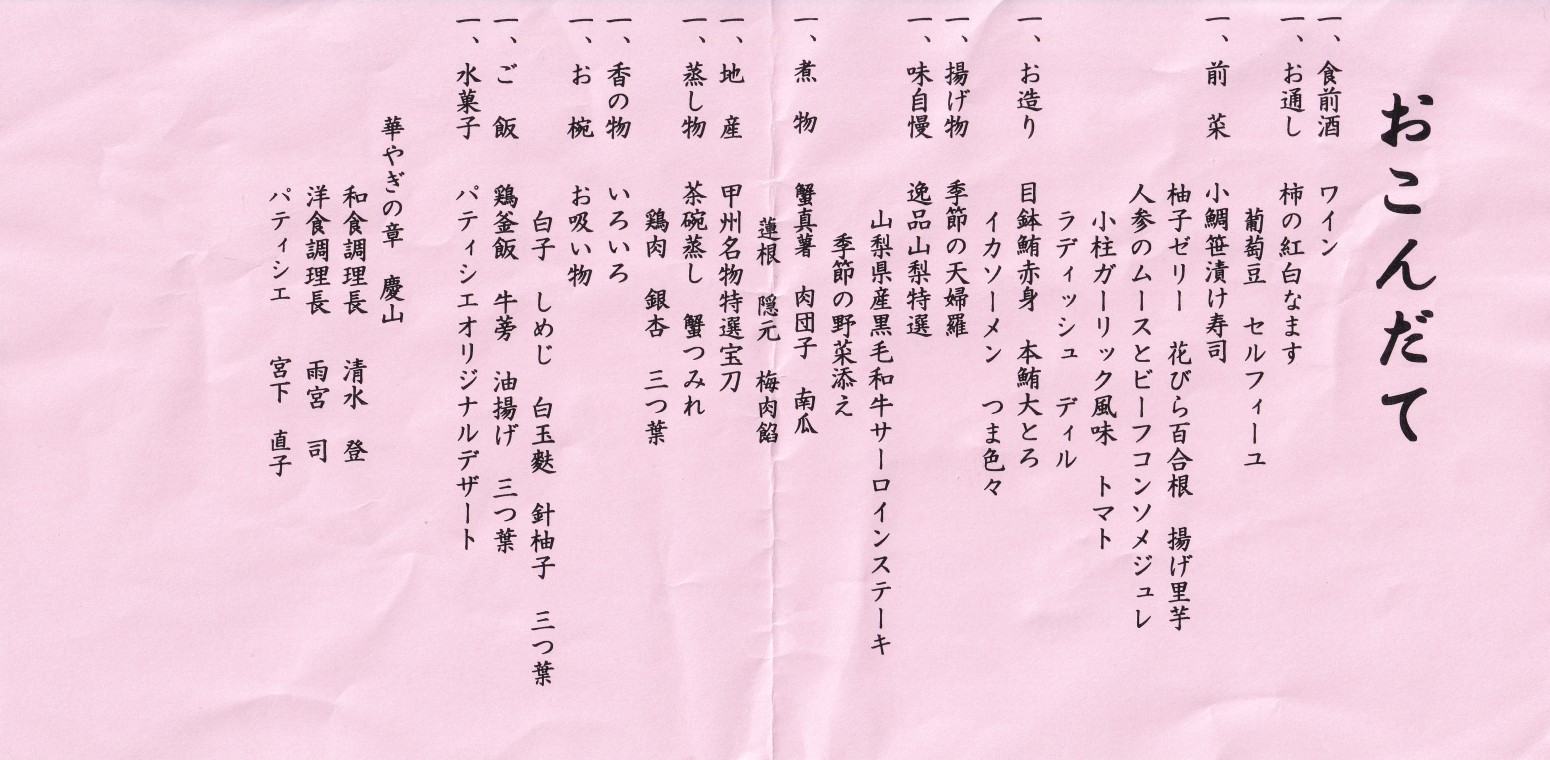 おこんだて
一、食前酒　ワイン
一、お通し　柿の紅白なます
葡萄豆　セルフィーユ
一、前　菜　小鯛笹漬け寿司
柚子ゼリー　花びら百合根　揚げ里芋
人参のムースとビーフコンソメジュレ
小柱ガーリック風味　トマト
ラディッシュ　ディル
一、お造り　目鉢鮪赤身　本鮪大とろ
イカソーメン　つま色々
一、揚げ物　季節の天婦羅
一、味自慢　逸品山梨特選
山梨県産黒毛和牛サーロインステーキ
季節の野菜添え
一、煮　物　蟹真薯　肉団子　南瓜
蓮根　隠元　梅肉餡
一、地　産　甲州名物特選宝刀
一、蒸し物　茶碗蒸し　蟹つみれ
鶏肉　銀杏　三つ葉
一、香の物　いろいろ
一、お　椀　お吸い物
白子　しめじ　白玉麩　針柚子　三つ葉
一、ご　飯　鶏釜飯　牛蒡　油揚げ　三つ葉
一、水菓子　パティシエオリジナルデザート
華やぎの章　慶山
和食調理長　清水　登
洋食調理長　雨宮　司
パティシエ　宮下　直子